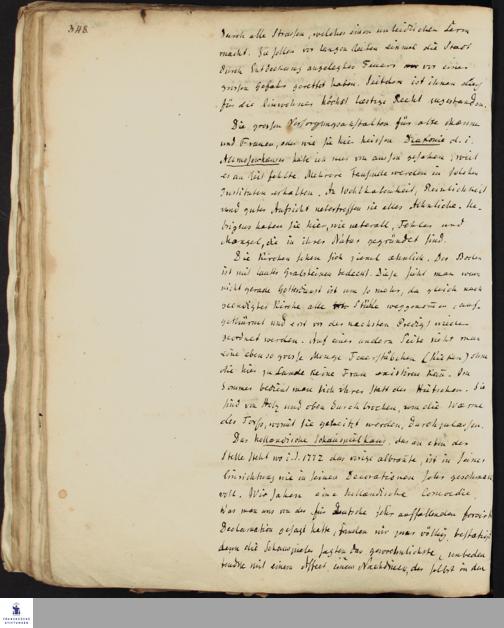 348.
durch alle Strassen, welches einen unleidlichen Lärm
macht. Sie sollen vor langen Zeiten einmal die Stadt
durch Entdeckung angelegten Feuers vor einer
grossen Gefahr gerettet haben. Seitdem ist ihnen dies
für die Einwohner höchst lästige Recht zugestanden.
Die grossen Versorgungsanstalten für alte Männer
und Frauen, oder wie sie hier heissen Diakonie d. i.
Almosenhäuser habe ich nur von aussen gesehen, weil
es an Zeit fehlte. Mehrere Tausende werden in solchen
Instituten erhalten. An Wohlhabenheit, Reinlichkeit
und guter Aufsicht übertreffen sie alles Ähnliche. Ue-
brigens haben sie hier, wie überall, Fehler und
Mängel, die in ihrer Natur gegründet sind.
Die Kirchen sehen sich ziemlich ähnlich. Der Boden
ist mit lauter Grabsteinen bedeckt. Diese sieht man wenn
nicht gerade Gottesdienst ist um so mehr, da gleich nach
geendigter Kirche alle Stühle weggenommen, auf-
gethürmt und erst vor der nächsten Predigt wieder
geordnet werden. Auf einer andern Seite sieht man
eine eben so grosse Menge Feuerstübchen ohne
die hier zu Lande keine Frau existiren kann. Im
Sommer bedient man sich ihrer statt der Hütschen. Sie
sind von Holz und oben durchbrochen, um die Wärme
des Torfs, womit sie geheitzt werden, durchzulassen.
Das holländische Schauspielhaus, das an eben der
Stelle steht wo i. J. 1772 das vorige abbrante, ist in seiner
Einrichtung wie in seinen Decorationen sehr geschmack
voll. Wir sahen eine holländische Comoedie.
Was man uns von der für Deutsche sehr auffallenden
Declamation gesagt hatte, fanden wir ganz völlig bestätigt
denn die Schauspieler sagten das gewöhnlichste, unbedeu
tendste mit einem Affect, einem Nachdruck, der selbst in der
FRANCKESCHE
STIFTUNGEN